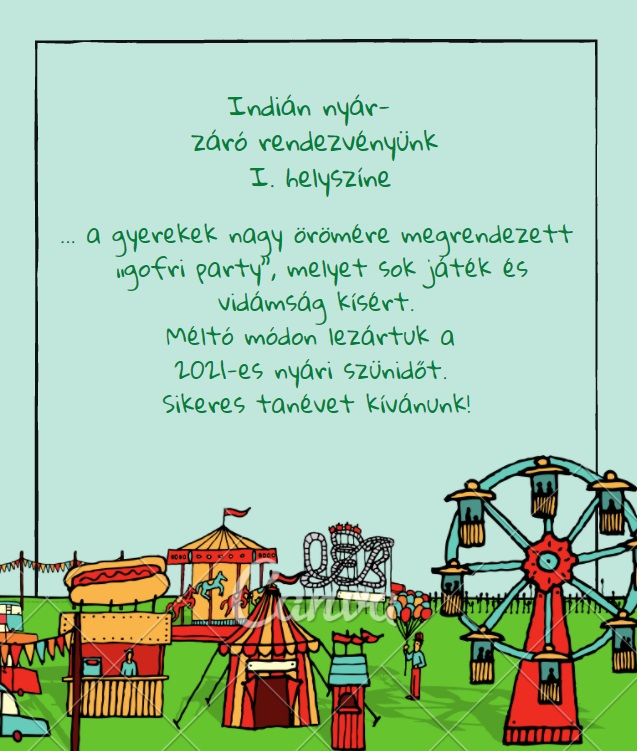 Indián nyár-
záró rendezvényünk
I. helyszíne
... a gyerekek nagy örömére megrendezett
„gofri party”, melyet sok játék és
vidámság kísért.
Méltó módon lezártuk a
2021-es nyári szünidőt.
Sikeres tanévet kívánunk!
Canva